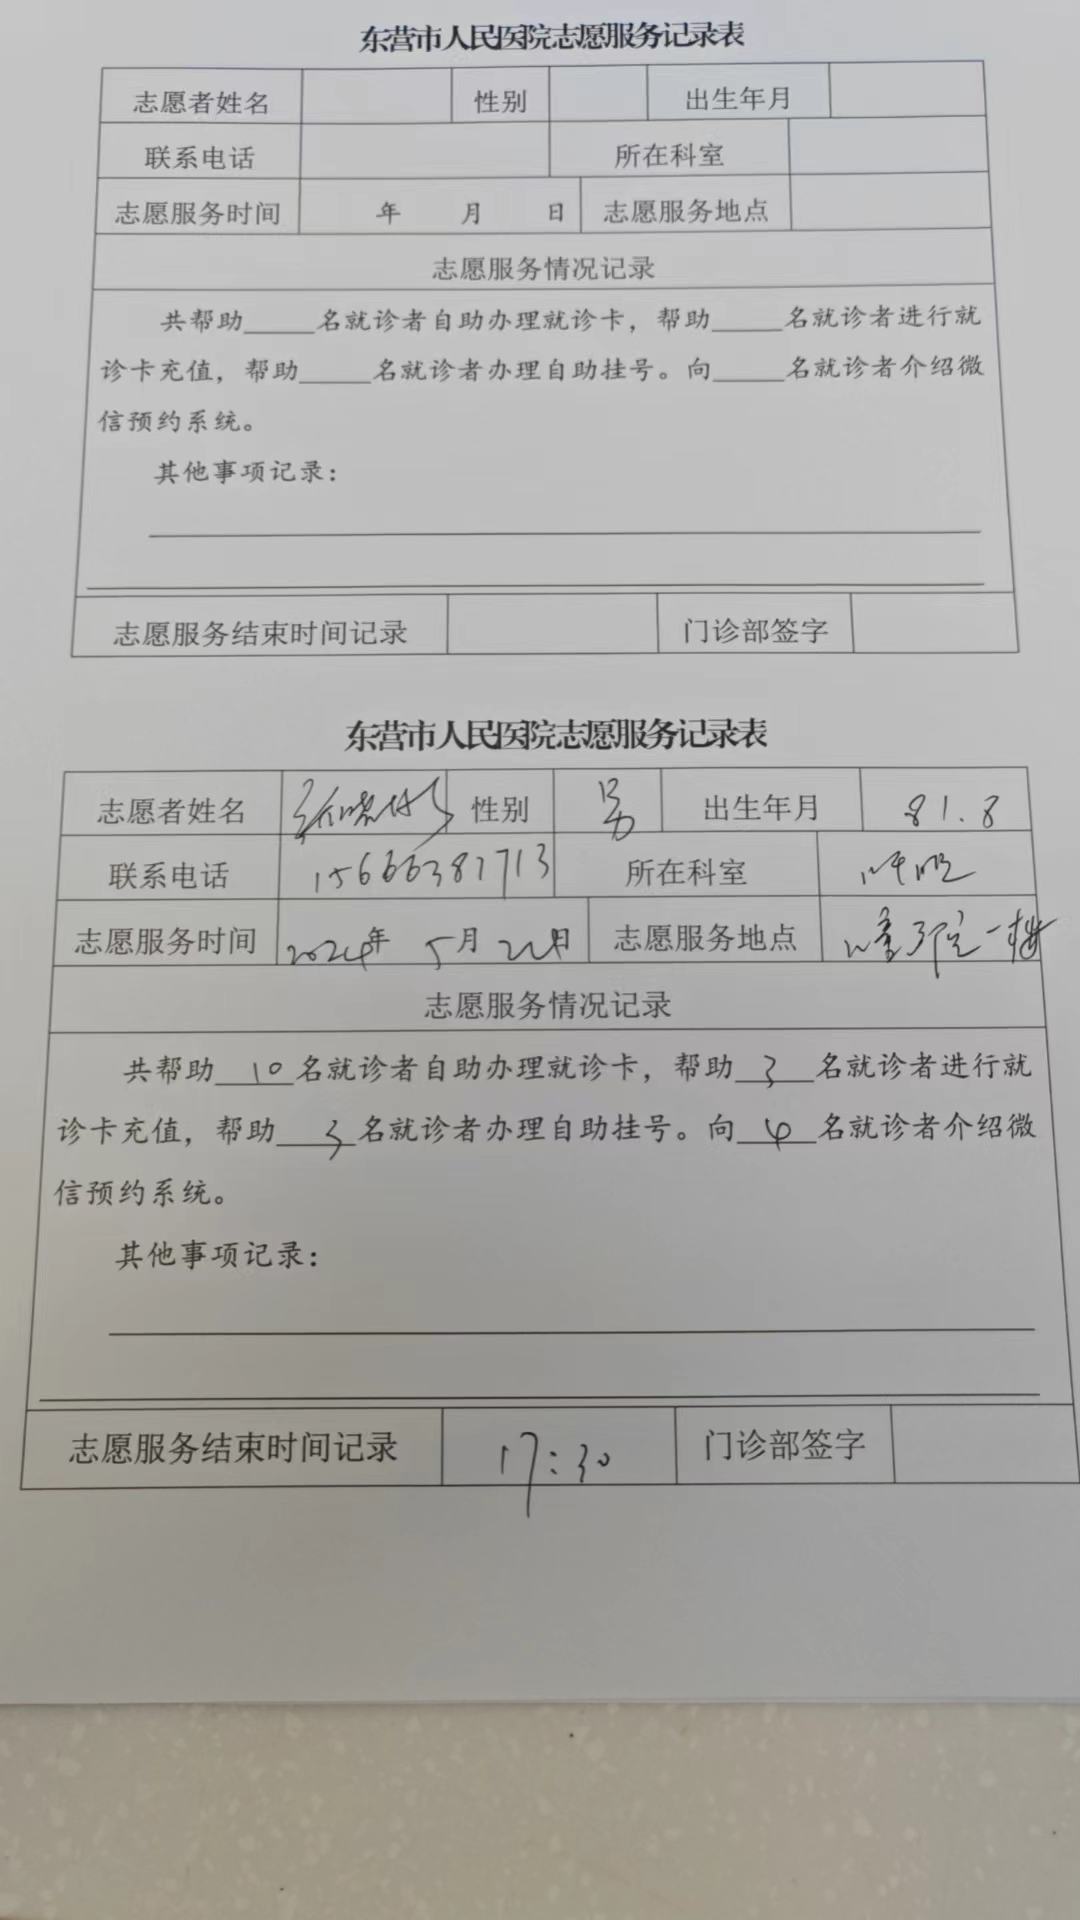 东营市人民医院志愿服务记录表
志愿者姓名 性别 出生年月
联系电话 所在科室
志愿服务时间 年 月 日 志愿服务地点
志愿服务情况记录
共帮助_____名就诊者自助办理就诊卡，帮助_____名就诊者进行就
诊卡充值，帮助_____名就诊者办理自助挂号。向_____名就诊者介绍微
信预约系统。
其他事项记录：
志愿服务结束时间记录 门诊部签字
东营市人民医院志愿服务记录表
志愿者姓名 性别 男 出生年月 81.8
联系电话 15666381713 所在科室 呼吸
志愿服务时间 2024年 5月 22日 志愿服务地点 一楼
志愿服务情况记录
共帮助 10 名就诊者自助办理就诊卡，帮助 3 名就诊者进行就
诊卡充值，帮助 3 名就诊者办理自助挂号。向 4 名就诊者介绍微
信预约系统。
其他事项记录：
志愿服务结束时间记录 17:30 门诊部签字